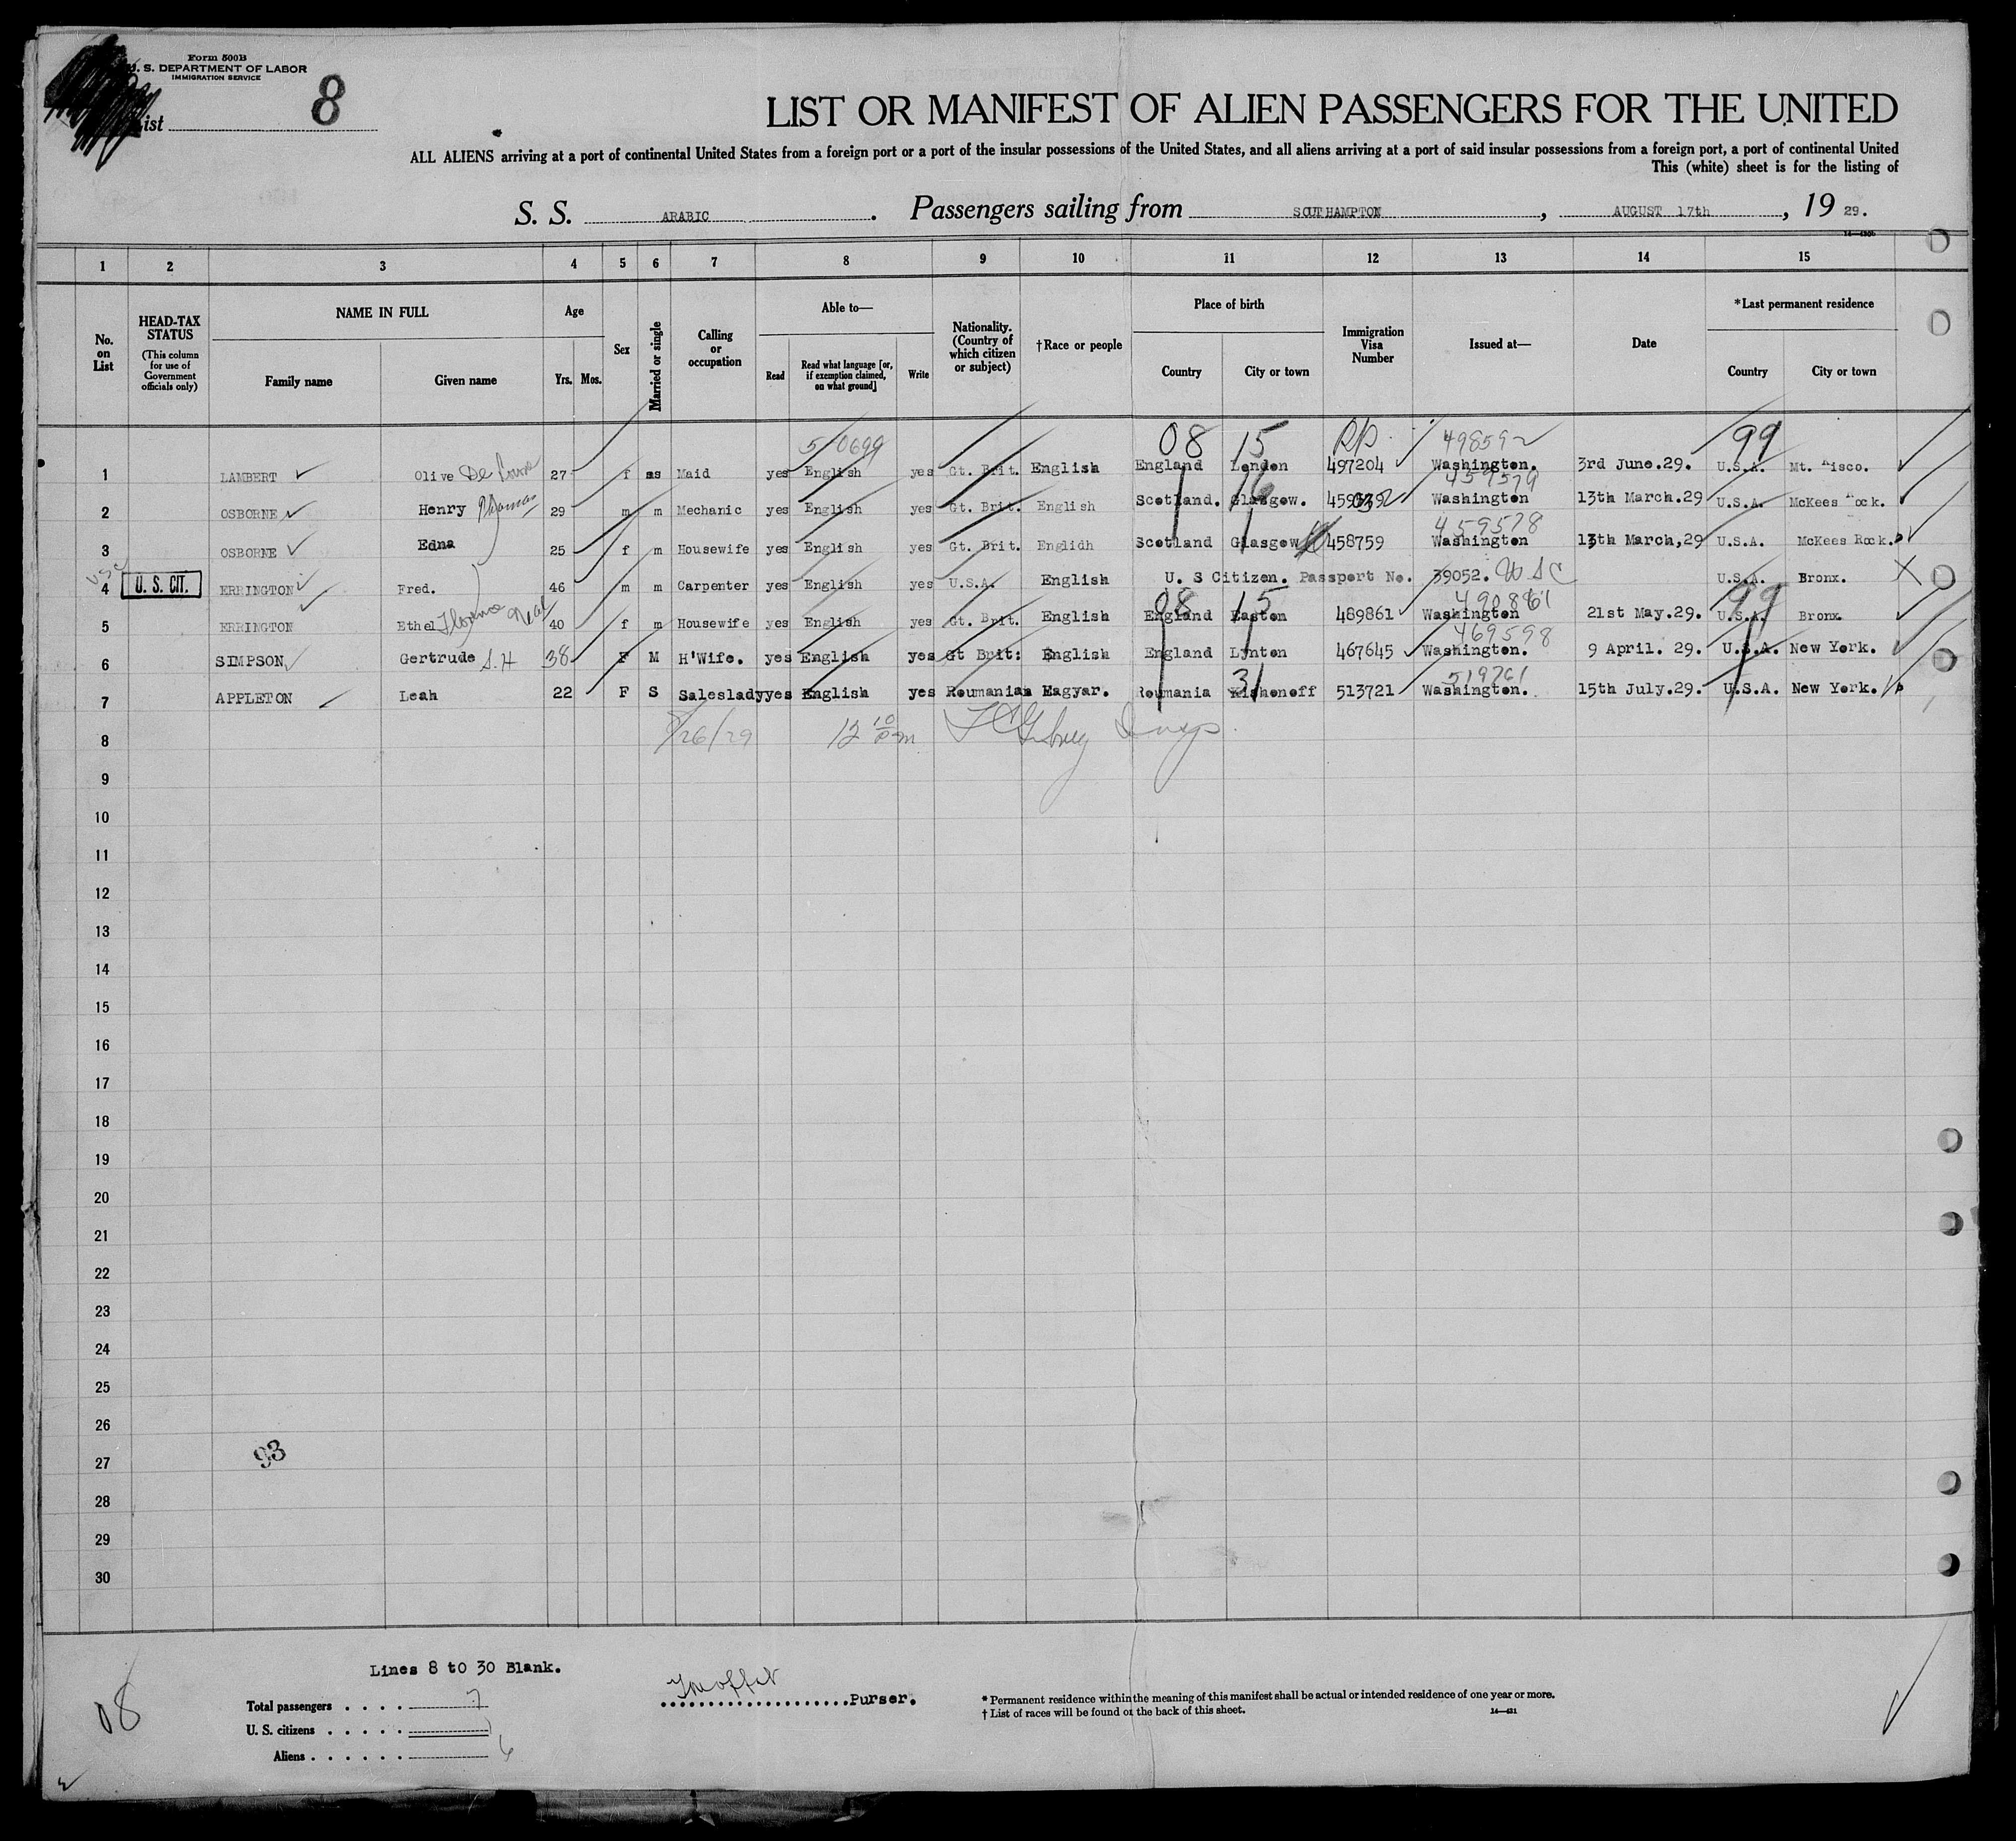 Form 500B
U. S. DEPARTMENT OF LABOR
IMMIGRATION SERVICE
List 8
LIST OR MANIFEST OF ALIEN PASSENGERS FOR THE UNITED
ALL ALIENS arriving at a port of continental United States from a foreign port or a port of the insular possessions of the United States, and all aliens arriving at a port of said insular possessions from a foreign port, a port of continental United
This (white) sheet is for the listing of
S. S. ARABIC. Passengers sailing from SOUTHAMPTON, AUGUST 17th, 19 29.
1 2 3 4 5 6 7 8 9 10 11 12 13 14 15
No. on List
HEAD-TAX STATUS
(This column for use of Government officials only)
NAME IN FULL
Family name Given name
Age
Yrs. Mos.
Sex
Married or single
Calling or occupation
Able to—
Read
Read what language [or, if exemption claimed, on what ground]
Write
Nationality. (Country of which citizen or subject)
†Race or people
Place of birth
Country City or town
Immigration Visa Number
Issued at—
Date
*Last permanent residence
Country City or town
5/0699 08 15 99
1 LAMBERT Olive 27 f s Maid yes English yes Gt. Brit. English England London 497204 Washington. 3rd June.29. U.S.A. Mt. Kisco.
16 459579
2 OSBORNE Henry Thomas 29 m m Mechanic yes English yes Gt. Brit. English Scotland. Glasgow. Washington 13th March.29 U.S.A. McKees Rock.
459578
3 OSBORNE Edna 25 f m Housewife yes English yes Gt. Brit. Englidh Scotland Glasgow 458759 Washington 13th March,29 U.S.A. McKees Rock.
4 U. S. CIT. ERRINGTON Fred. 46 m m Carpenter yes English yes U.S.A. English U. S Citizen. Passport No. 39052. U S C U.S.A. Bronx. X
08 15 99
5 ERRINGTON Ethel Florence 40 f m Housewife yes English yes Gt. Brit. English England Easton 489861 Washington 21st May.29. U.S.A. Bronx.
469598
6 SIMPSON Gertrude S.H 38 F M H'Wife. yes English yes Gt Brit: English England Lynton 467645 Washington. 9 April. 29. U.S.A. New York.
31 519761
7 APPLETON Leah 22 F S Saleslady yes English yes Roumanian Magyar. Roumania Kishenoff 513721 Washington. 15th July.29. U.S.A. New York.
8 8/26/29 12 10 pm
9
10
11
12
13
14
15
16
17
18
19
20
21
22
23
24
25
26
27 93
28
29
30
Lines 8 to 30 Blank.
08
Total passengers . . . . 7
U. S. citizens . . . . . 1
Aliens . . . . . . 6
Purser.
* Permanent residence within the meaning of this manifest shall be actual or intended residence of one year or more.
† List of races will be found on the back of this sheet.
14—421